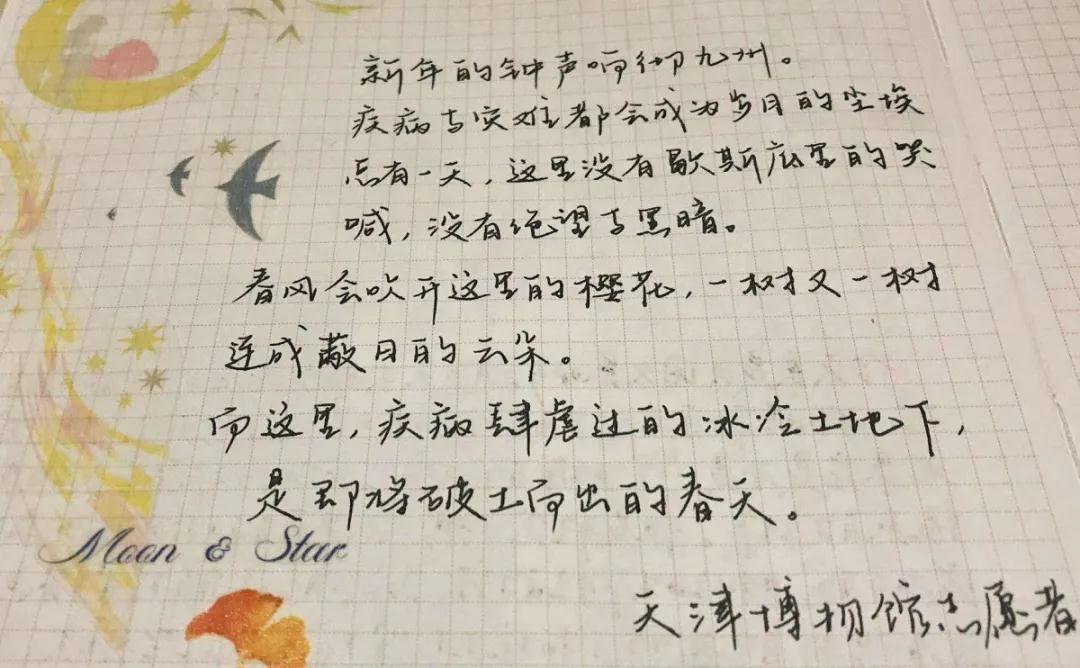 新年的钟声响彻九州。
疾病与灾难都会成为岁月的尘埃
总有一天，这里没有歇斯底里的哭
喊，没有绝望与黑暗。
春风会吹开这里的樱花，一树又一树
连成蔽日的云朵。
而这里，疾病肆虐过的冰冷土地下，
是即将破土而出的春天。
Moon & Star
天津博物馆志愿者